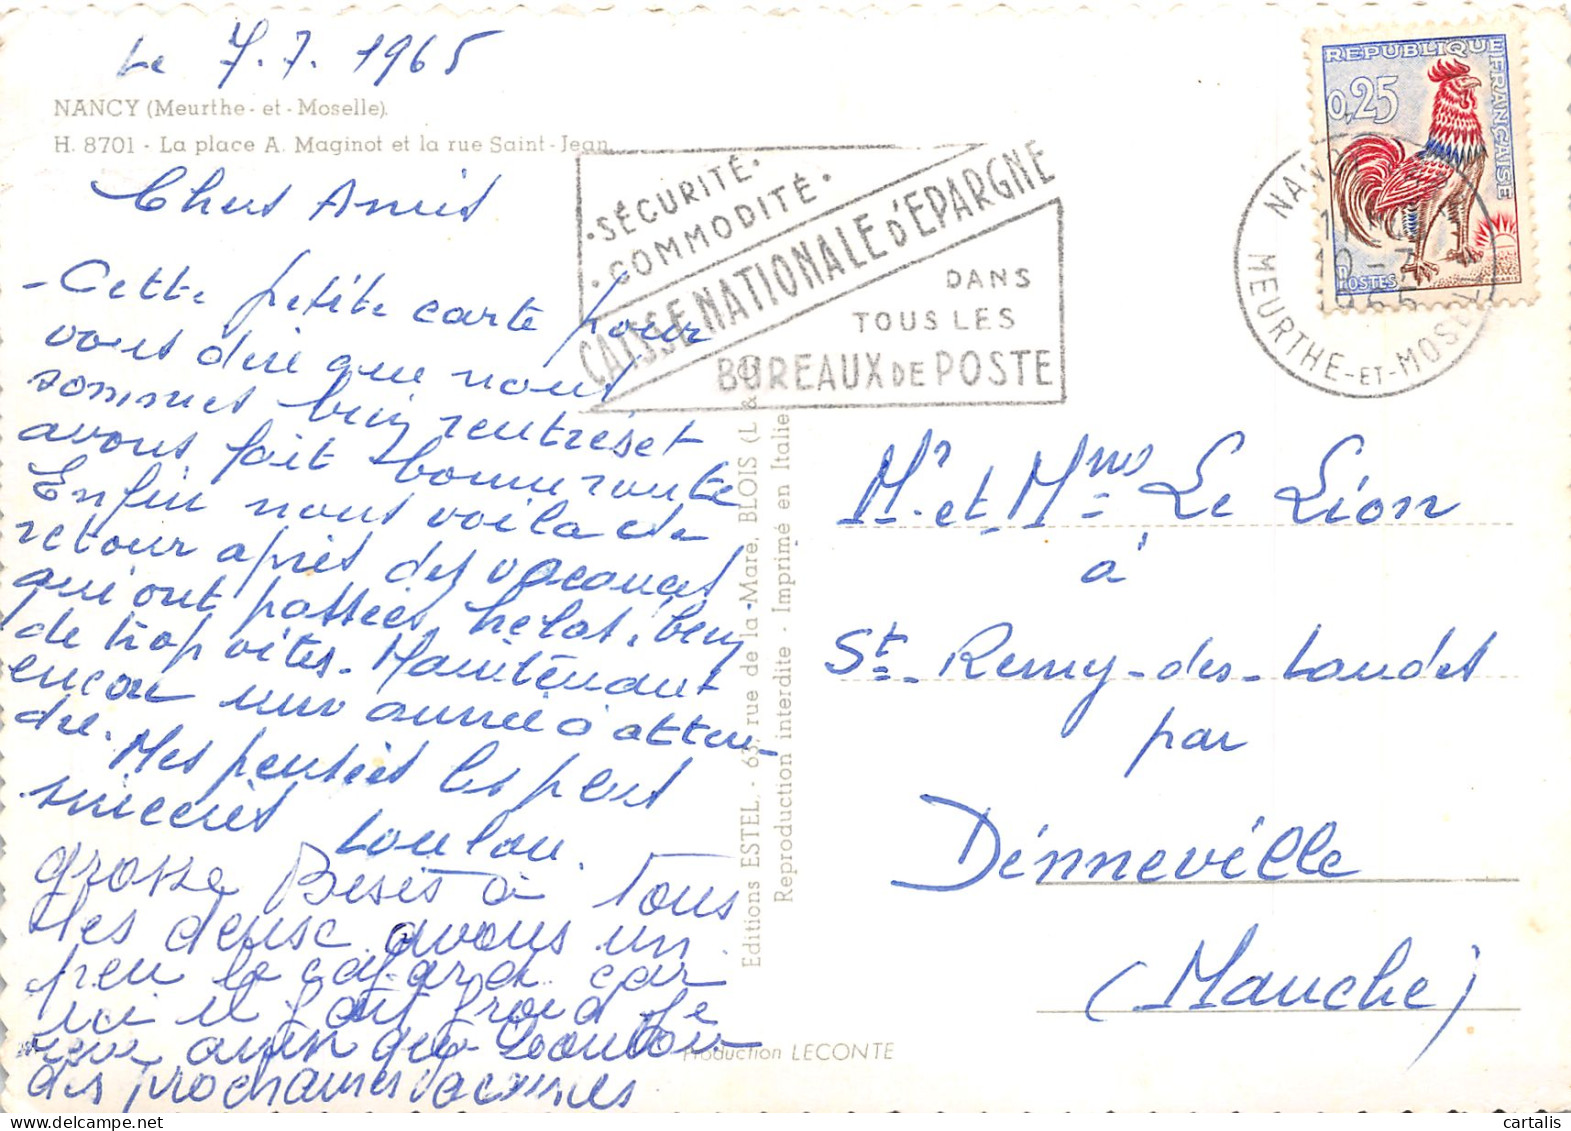 Le 7.7.1965
NANCY (Meurthe-et-Moselle).
H. 8701 - La place A. Maginot et la rue Saint-Jean
Chers Amis
- Cette petite carte pour
vous dire que nous
sommes bien rentrés et
avons fait bonne route
Enfin nous voila de
retour après des vacances
qui ont passées, hélas, bien
de trop vites. Maintenant
encore une année à atten-
dre. Mes pensées les plus
sincères
Loulou.
grosse Bises à Tous
les deux avons un
peu le cafard car
ici il fait froid je
que
des prochaines vacances
Editions ESTEL, - 63, rue de la-Mare, BLOIS (L &
Reproduction interdite - Imprimé en Italie
Production LECONTE
• SÉCURITÉ •
• COMMODITÉ •
CAISSE NATIONALE D'ÉPARGNE
DANS
TOUS LES
BUREAUX DE POSTE
REPUBLIQUE FRANÇAISE
0,25
POSTES
MEURTHE-ET-MOSELLE
Mr et Mme Le Lion
à
St- Remy-des-Landes
par
Dénneville
(Manche)
cartalis